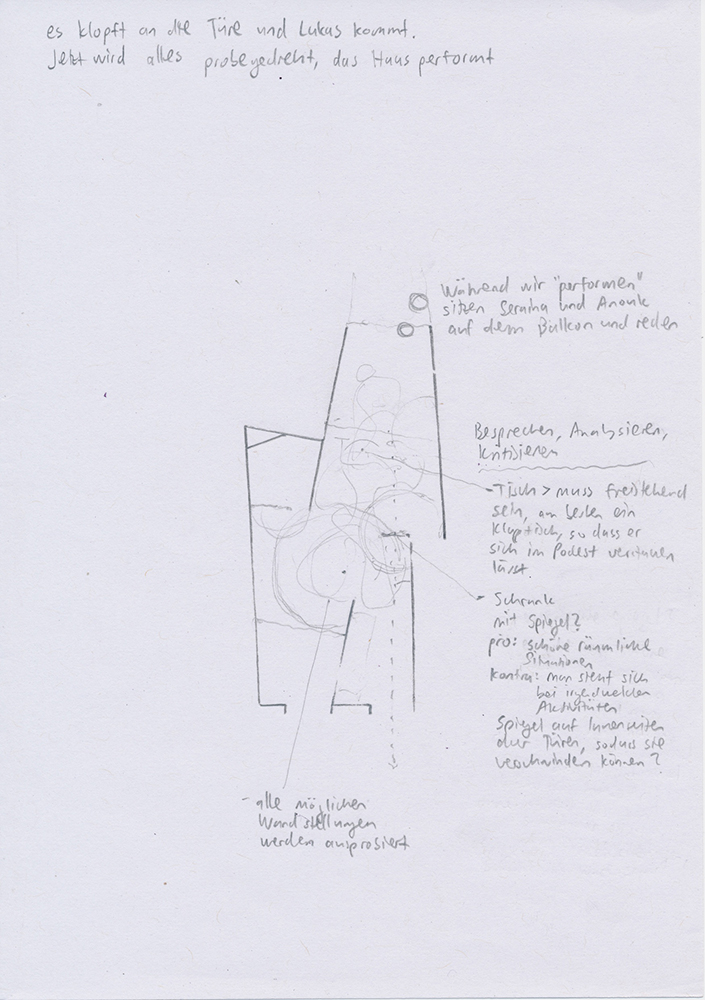 es klopft an die Türe und Lukas kommt.
Jetzt wird alles probegedreht, das Haus performt
Während wir "performen"
sitzen Seraina und Anouk
auf dem Balkon und reden
Besprechen, Analysieren,
kritisieren
- Tisch > muss freistehend
sein, am besten ein
Klapptisch, so dass er
sich im Podest verstauen
lässt.
- Schrank
mit Spiegel?
pro: schöne räumliche
Situationen
kontra: man sieht sich
bei irgendwelchen
Aktivitäten
Spiegel auf Innenseiten
der Türen, sodass sie
verschwinden können?
- alle möglichen
Wandstellungen
werden ausprobiert